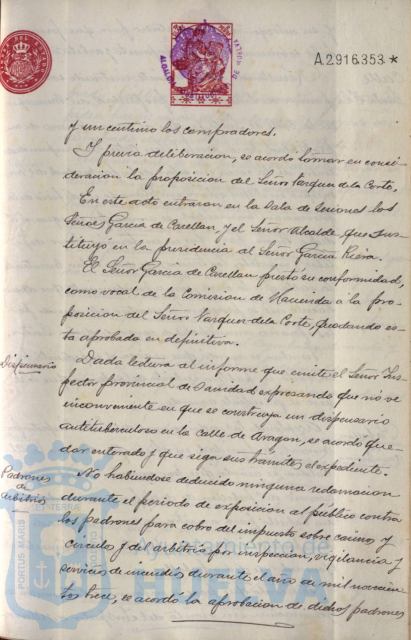 A.2.916.353.*
y un centimo los compradores.
Y previa deliberacion, se acordó tomar en consi-
deracion la proposicion del Señor Vazquez de la Corte.
En este acto entraron en la Sala de Sesiones los
Señores Garcia de Cevellan, y el Señor Alcalde, que sus-
tituyó en la presidencia al Señor Garcia Riera.
El Señor Garcia de Cevellan prestó su conformidad,
como vocal de la Comision de Hacienda a la pro-
posicion del Señor Vazquez de la Corte, quedando es-
ta aprobada en definitiva.
Dispensario
Dada lectura al informe que emite el Señor Ins-
pector provincial de Sanidad expresando que no ve
inconveniente en que se construya un dispensario
antituberculoso en la calle de Aragon, se acordó que-
dar enterado y que siga sus trámites el expediente.
Padrones
de
arbitrios
No habiendose deducido ninguna reclamacion
durante el periodo de exposicion al público contra
los padrones para cobro del impuesto sobre casinos y
circulos y del arbitrio por inspeccion, vigilancia y
servicio de incendios durante el año de mil novecien-
tos trece, se acordó la aprobacion de dichos padrones
PORTUS MARIS
HUELVA